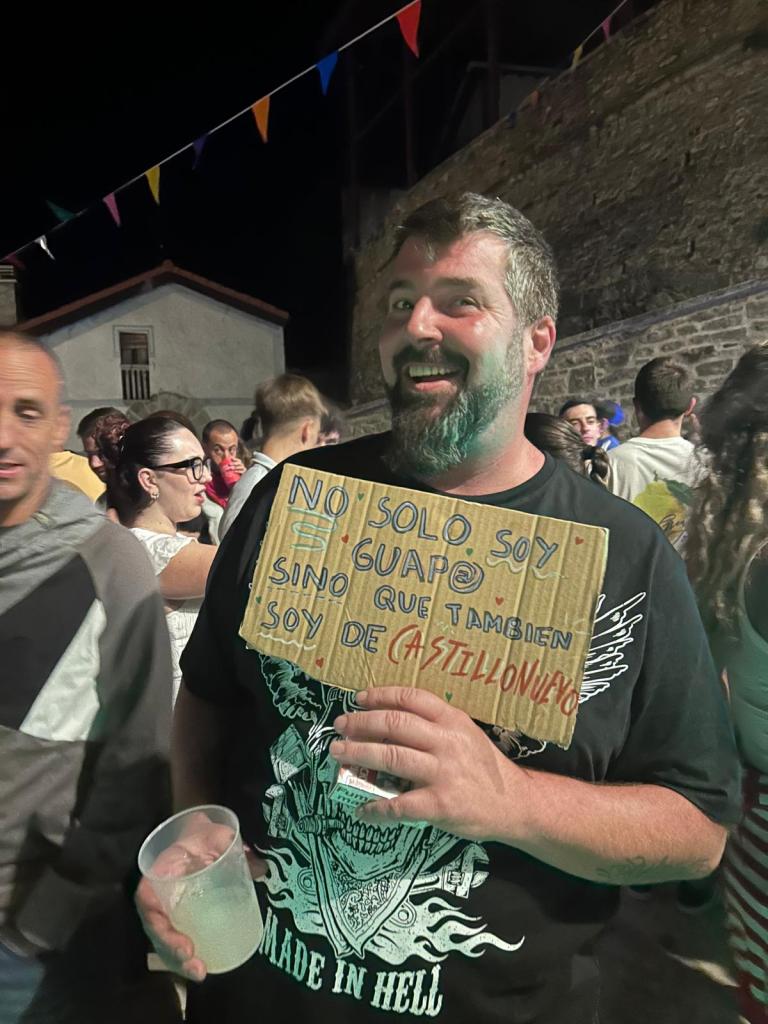 NO SOLO SOY
SI GUAP@
SINO QUE TAMBIEN
SOY DE CASTILLONUEVO
MADE IN HELL